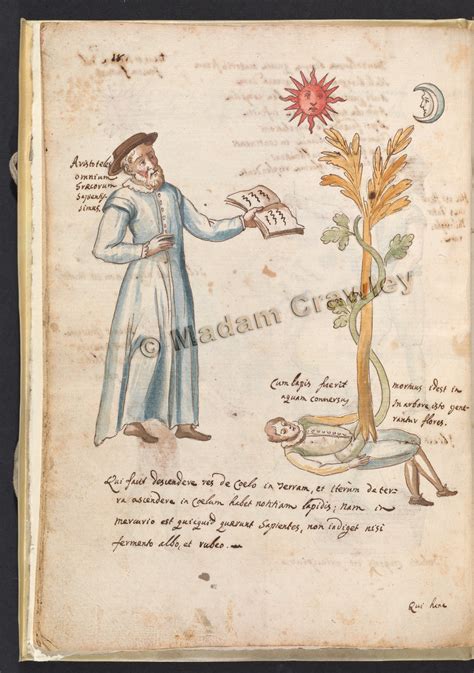 Aristoteles
omnium
Græcorum
Sapientis-
simus
© Madam Crawley
Cum lapis fuerit mortuus idest in
aquam conversus, in arbore isto gene-
rantur flores.
Qui facit descendere res de Coelo in terram, et iterum de ter-
ra ascendere in Coelum habet notitiam lapidis; nam in
mercurio est quicquid querunt Sapientes, non indiget nisi
fermento albo, et rubeo.
Qui hinc